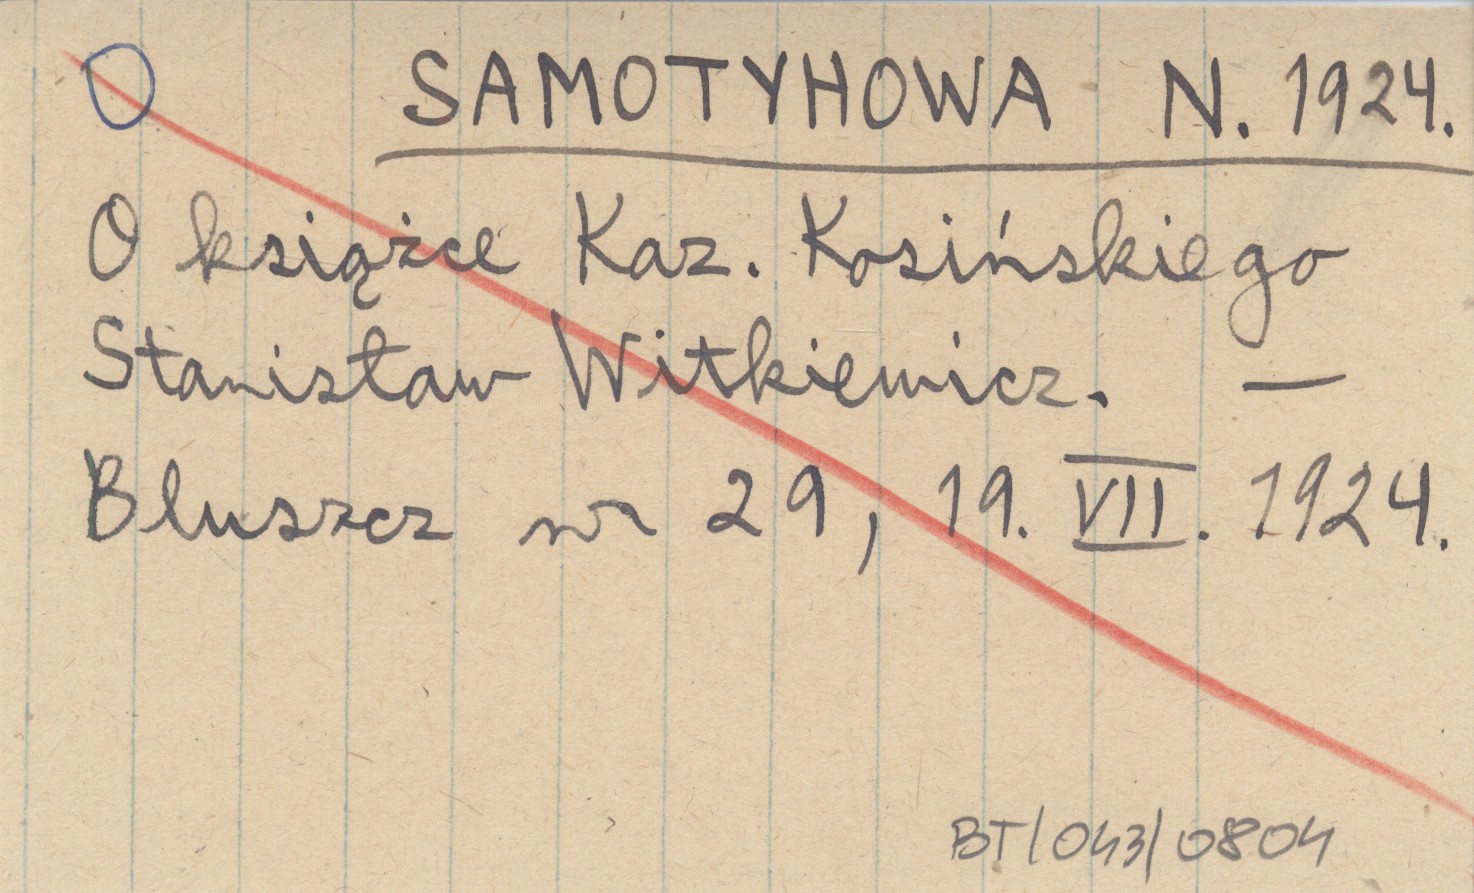 SAMOTYHOWA N. 1924.
O książce Kaz. Kosińskiego
Stanisław Witkiewicz. —
Bluszcz nr 29, 19. VII. 1924.
BT/043/0804